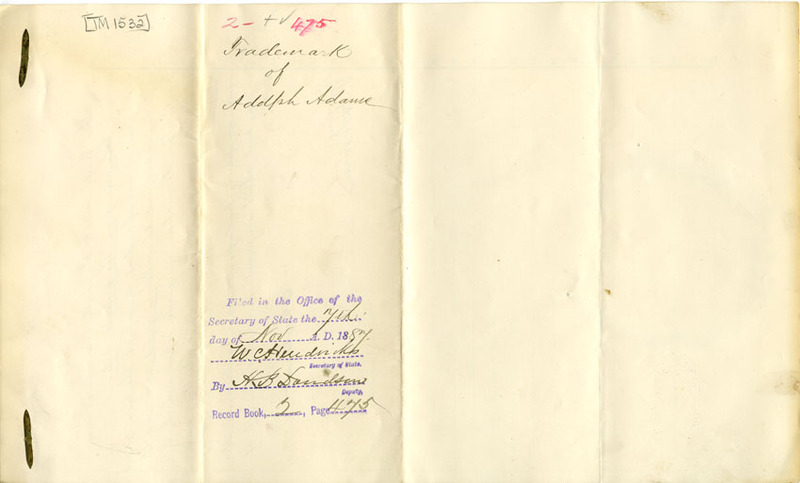 [TM 1532]
2- + √ 475
Trademark
of
Adolph Adams
Filed in the Office of the
Secretary of State the 7th
day of Nov A. D. 1887.
W C Hendricks
Secretary of State.
By H B Davidson
Deputy.
Record Book, 2, Page 475